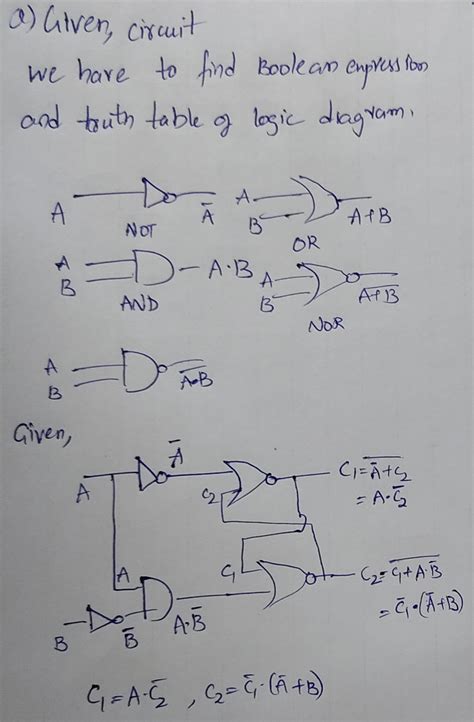 a) Given, circuit
we have to find Boolean expression
and truth table of logic diagram.
A NOT A̅
A B OR A+B
A B AND A·B
A B NOR \overline{A+B}
A B \overline{A·B}
Given,
A A̅ C₂ C₁ = \overline{A̅+C₂}
= A·C̅₂
A C₁ C₂ = \overline{C₁+A·B̅}
B B̅ A·B̅ = C̅₁·(A̅+B)
C₁ = A·C̅₂ , C₂ = C̅₁·(A̅+B)